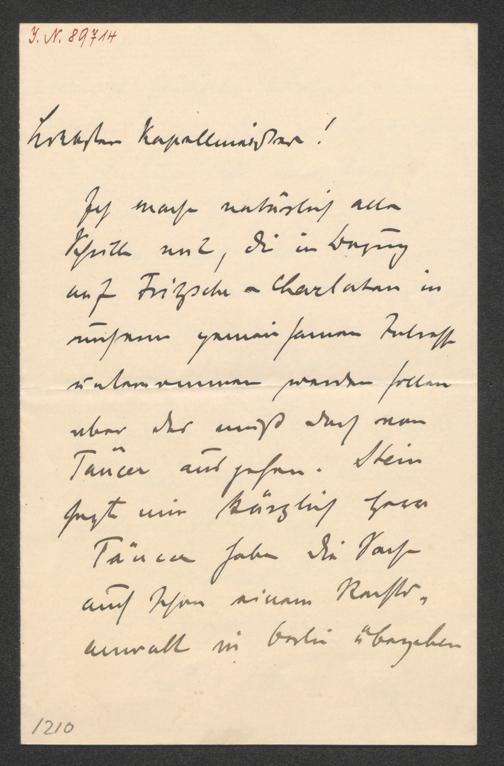 I. N. 89714
Liebster Kapellmeister!
Ich mache natürlich alle
Schritte mit, die in Bezug
auf Fritzsche - Charlatan in
unserem gemeinsamen Interesse
unternommen werden sollen
aber das muß doch von
Täncer ausgehen. Stein
sagt mir kürzlich Herr
Täncer habe die Sache
auch schon einem Rechts-
anwalt in Berlin übergeben
1210